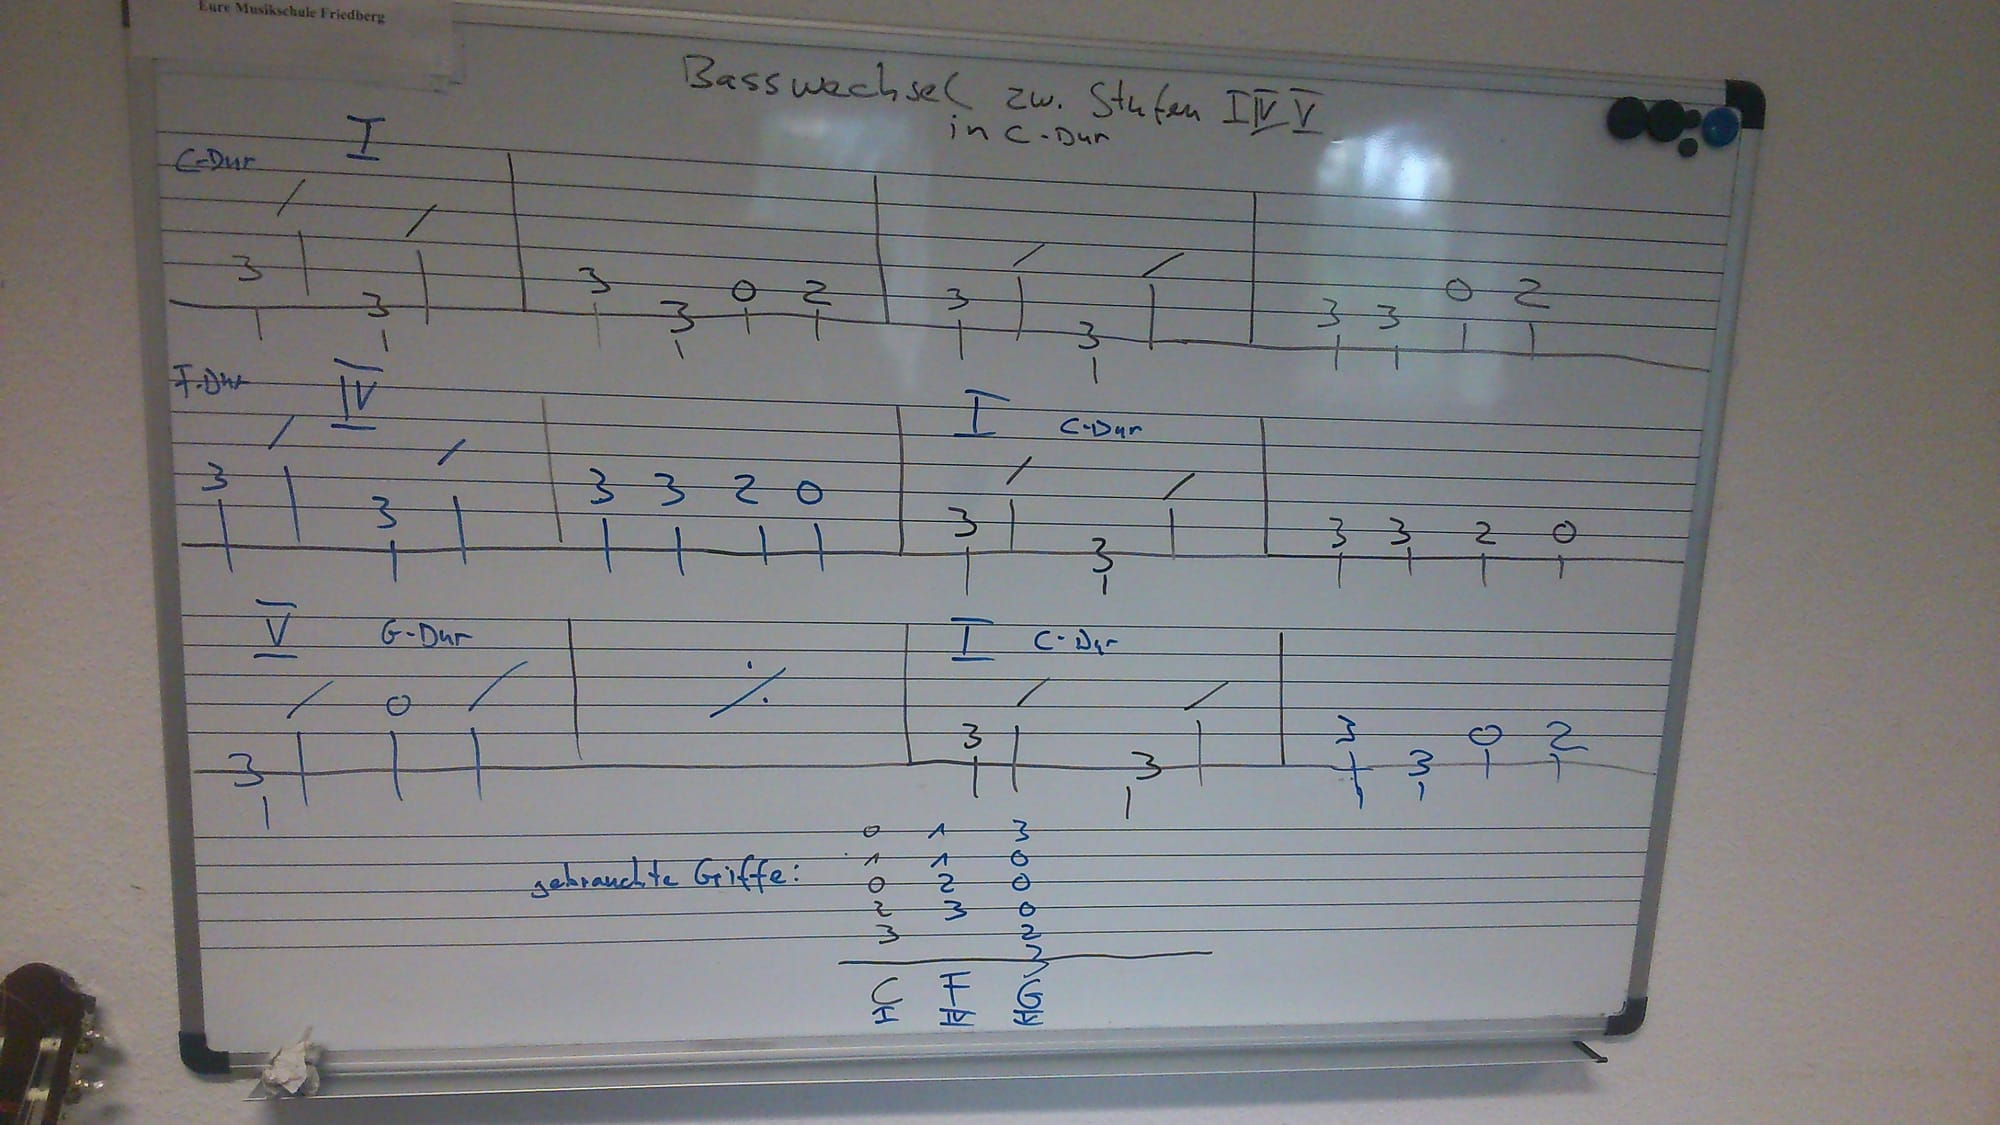 Eure Musikschule Friedberg
Basswechsel zw. Stufen I IV V
in C-Dur
C-Dur I
/ /
3 3 3 3 0 2 3 / 3 / 3 3 0 2
F-Dur IV I C-Dur
/ / / /
3 3 3 3 2 0 3 3 3 3 2 0
V G-Dur I C-Dur
/ 0 / ٪ / /
3 3 3 3 3 0 2
0 1 3
1 1 0
gebrauchte Griffe: 0 2 0
2 3 0
3 2
3
C F G
I IV V